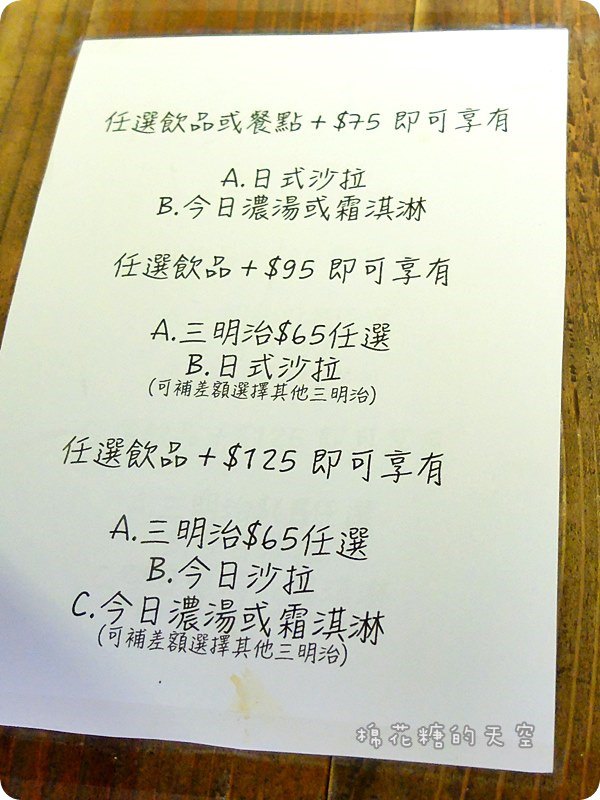 任選飲品或餐點+$75 即可享有
A.日式沙拉
B.今日濃湯或霜淇淋
任選飲品+$95 即可享有
A.三明治$65任選
B.日式沙拉
(可補差額選擇其他三明治)
任選飲品+$125 即可享有
A.三明治$65任選
B.今日沙拉
C.今日濃湯或霜淇淋
(可補差額選擇其他三明治)
棉花糖的天空